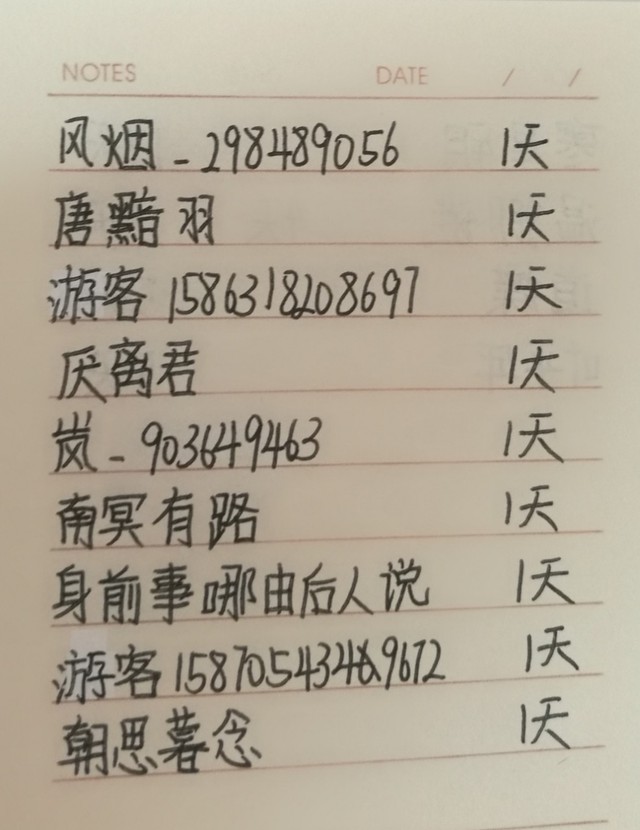 NOTES DATE / /
风烟-298489056 1天
唐黯羽 1天
游客1586318208697 1天
厌离君 1天
岚-903649463 1天
南冥有路 1天
身前事哪由后人说 1天
游客 1天
朝思暮念 1天